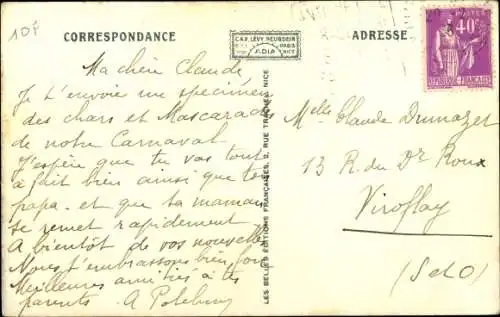 10F
CORRESPONDANCE
CAP. LÉVY NEURDEIN
PARIS
NICE
ADIA
ADRESSE
POSTES
40c
REPUBLIQUE FRANÇAISE
Ma chère Claude,
Je t'envoie un specimen
des chars et Mascarades
de notre Carnaval
J'espère que tu vas tout
à fait bien ainsi que ton
papa. et que ta maman
se remet rapidement
A bientôt de vos nouvelles
Nous t'embrassons bien fort
Meilleures amitiés à tes
parents.
LES BELLES ÉDITIONS FRANÇAISES, RUE NICE
Melle Claude Dumazet
13 R. du Dr Roux
Viroflay
(S et O)